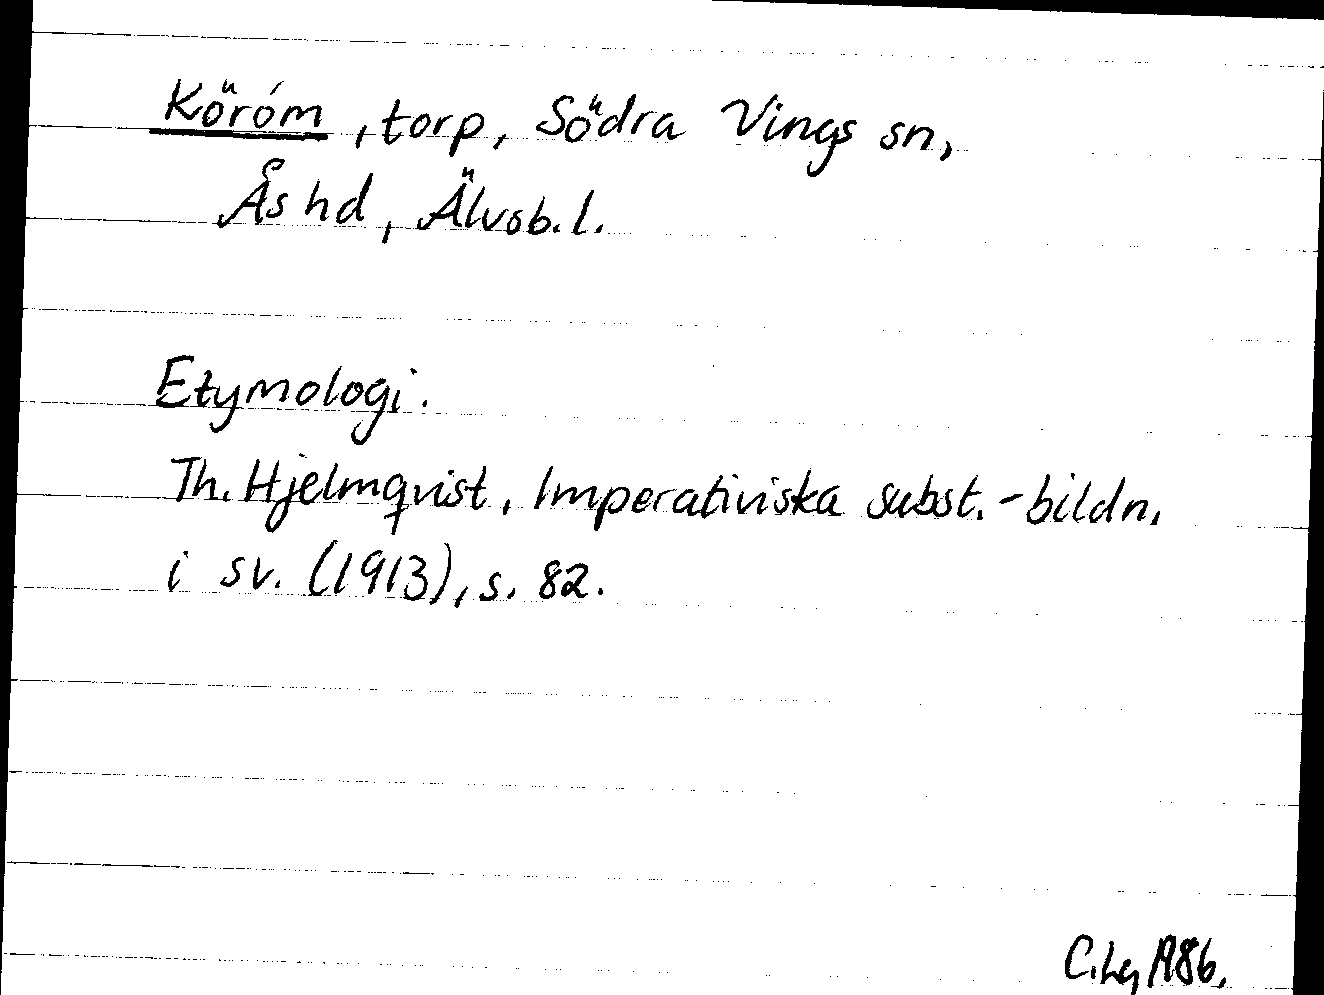 Köróm, torp, Södra Vings sn,
Ås hd, Älvsb. l.
Etymologi.
Th. Hjelmqvist, Imperativiska subst.-bildn.
i sv. (1913), s. 82.